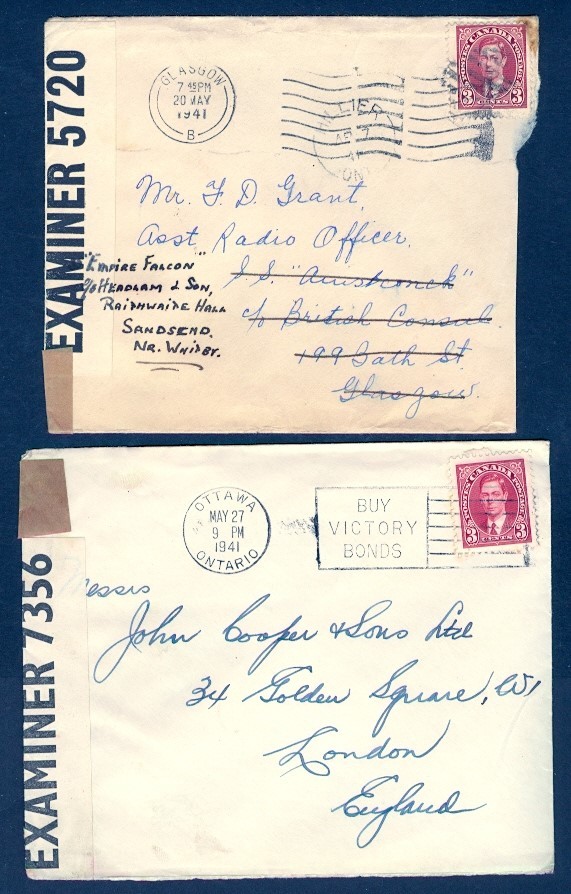 EXAMINER 5720
GLASGOW
7 45PM
20 MAY
1941
B
HILLIER
AP 7
41
ONT
POSTES CANADA POSTAGE
3 CENTS 3
Mr. F. D. Grant,
Asst Radio Officer,
S.S.
c/o British Consul.
199 Bath St.
Glasgow.
"EMPIRE FALCON"
c/o HEADLAM & SON,
RAITHWAITE HALL
SANDSEND.
NR. WHITBY.
EXAMINER 7356
OTTAWA
MAY 27
9 PM
1941
ONTARIO
BUY
VICTORY
BONDS
POSTES CANADA POSTAGE
3 CENTS 3
Messrs
John Cooper & Sons Ltd
34 Golden Square, W1
London
England